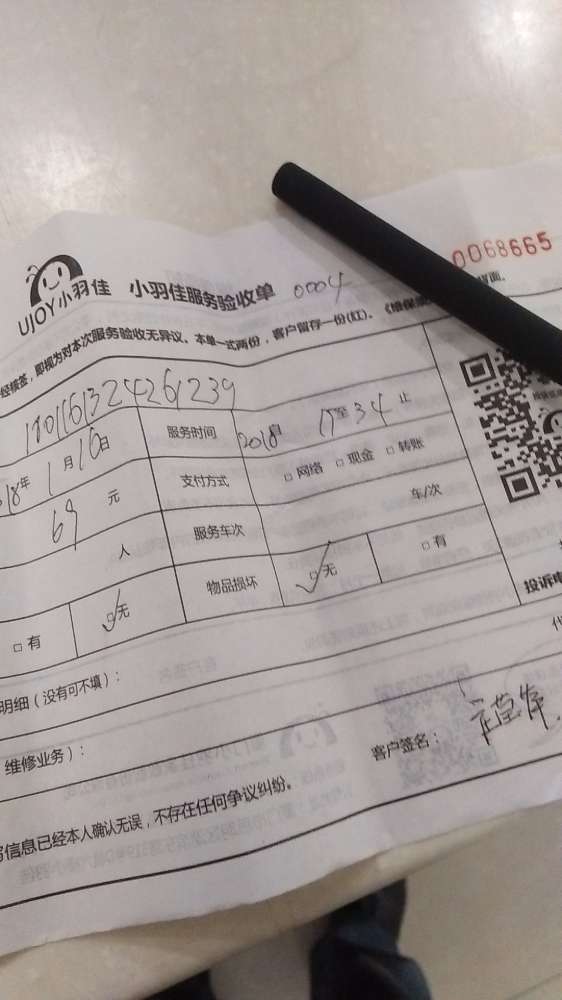 0068665
UJOY小羽佳 小羽佳服务验收单 0004
签，即视为对本次服务验收无异议。本单一式两份，客户留存一份(红)。《维保
服务时间 2018 至 止
年1月16日 支付方式 □网络 □现金 □转账
69 元 服务车次 车/次
人 物品损坏 □无 □有
□有 □无 投诉电
明细（没有可不填）：
维修业务）：
客户签名：
信息已经本人确认无误，不存在任何争议纠纷。